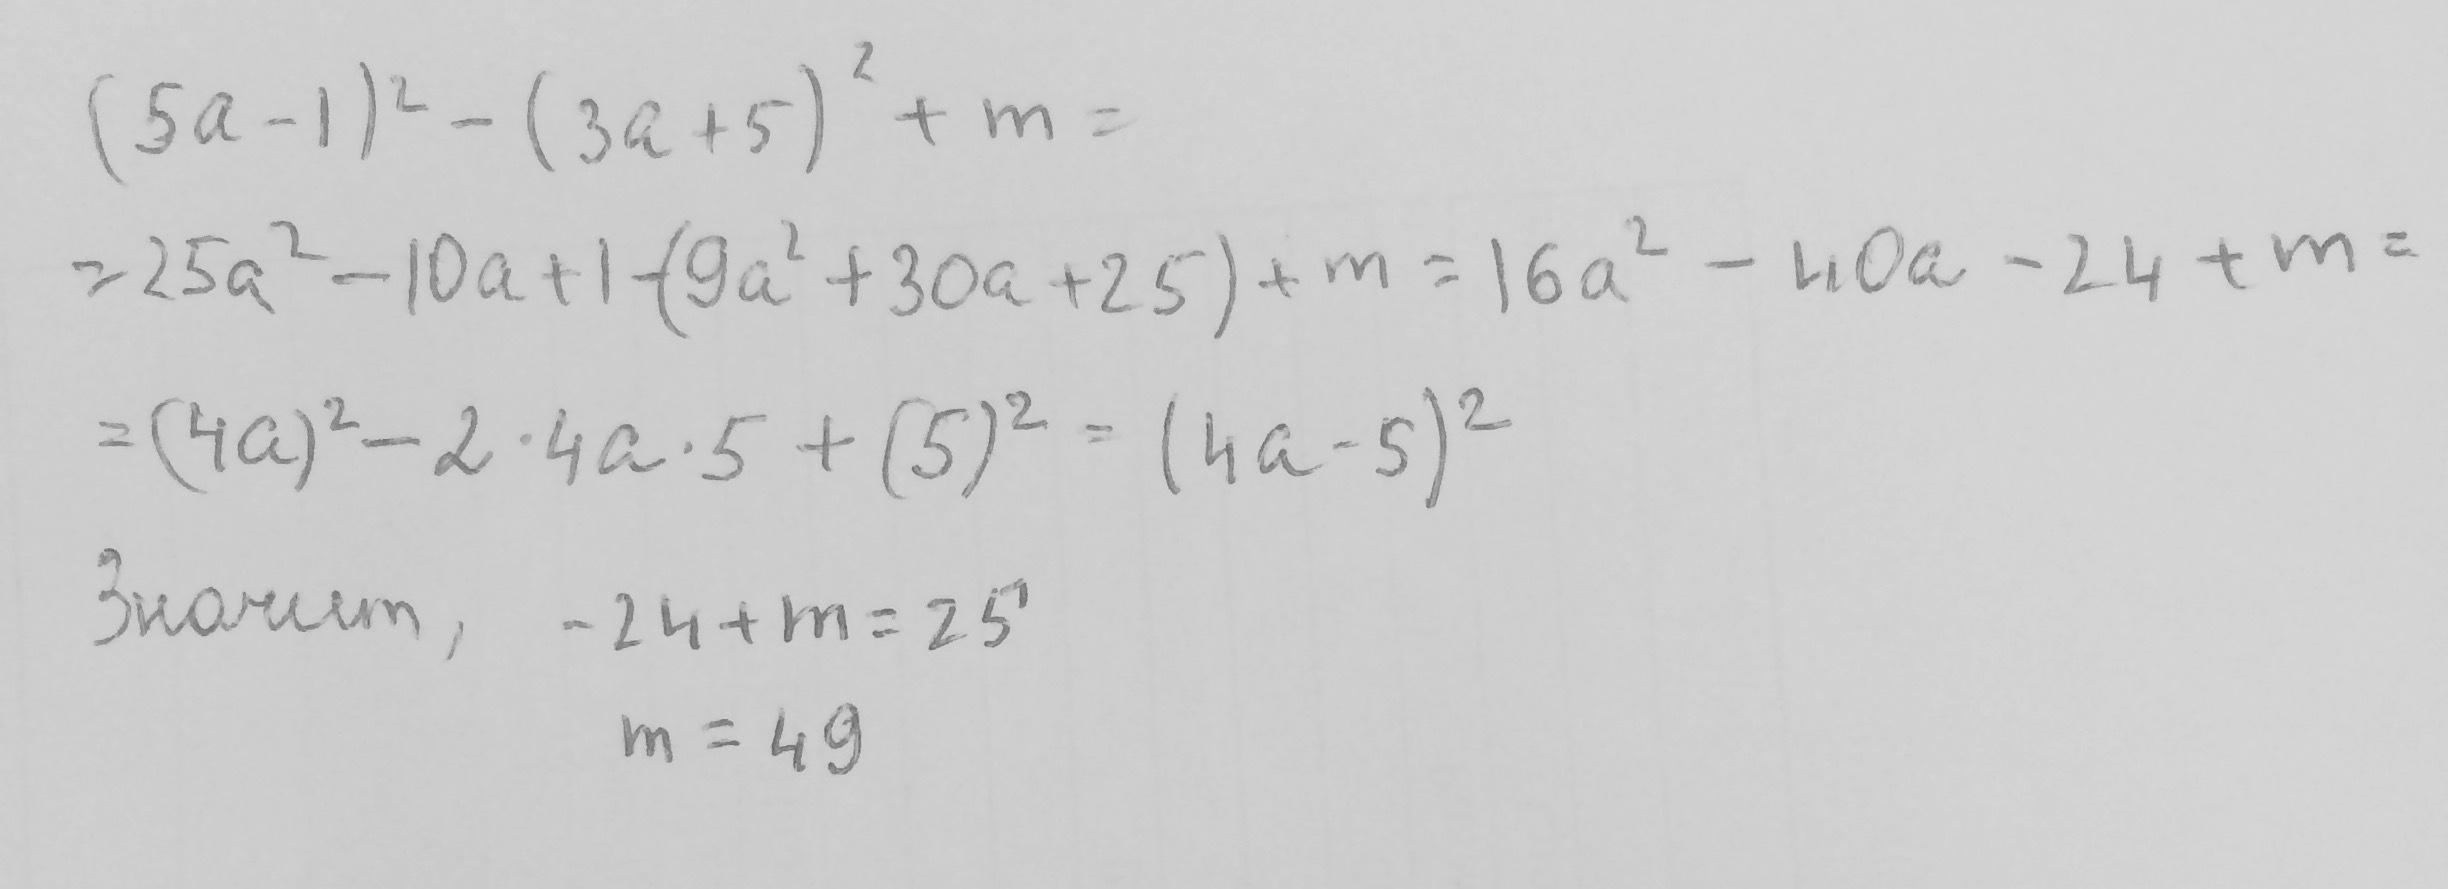 (5a-1)² - (3a+5)² + m =
= 25a² - 10a + 1 - (9a² + 30a + 25) + m = 16a² - 40a - 24 + m =
= (4a)² - 2·4a·5 + (5)² = (4a-5)²
Значит, -24 + m = 25
m = 49